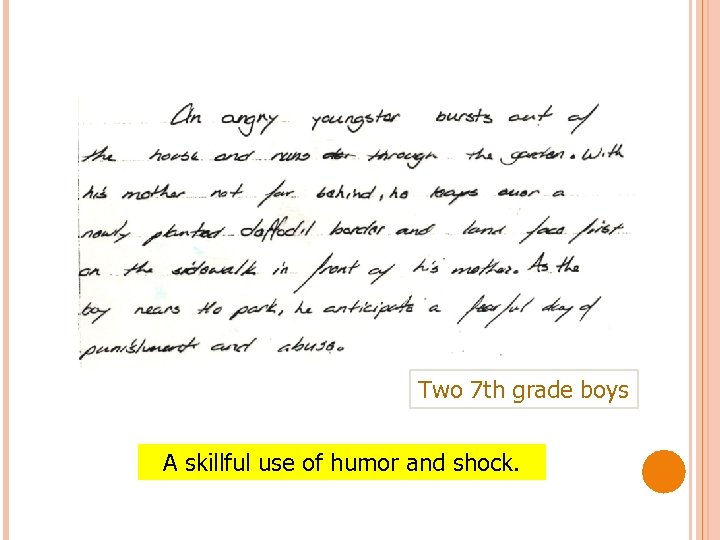 An angry youngster bursts out of
the house and runs through the garden. With
his mother not far behind, he leaps over a
newly planted daffodil border and land face first
on the sidewalk in front of his mother. As the
boy nears the park, he anticipats a fearful day of
punishment and abuse.
Two 7th grade boys
A skillful use of humor and shock.